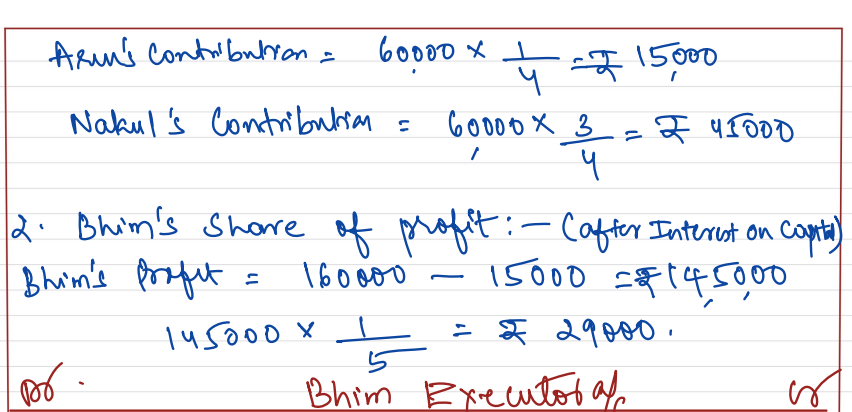 Arun's Contribution = 60,000 × 1/4 = ₹ 15,000
Nakul's Contribution = 60,000 × 3/4 = ₹ 45000
2. Bhim's Share of profit :- (after Interest on Capital)
Bhim's Profit = 160000 - 15000 = ₹ 1,45,000
145000 × 1/5 = ₹ 29000.
Dr. Bhim Executor a/c Cr